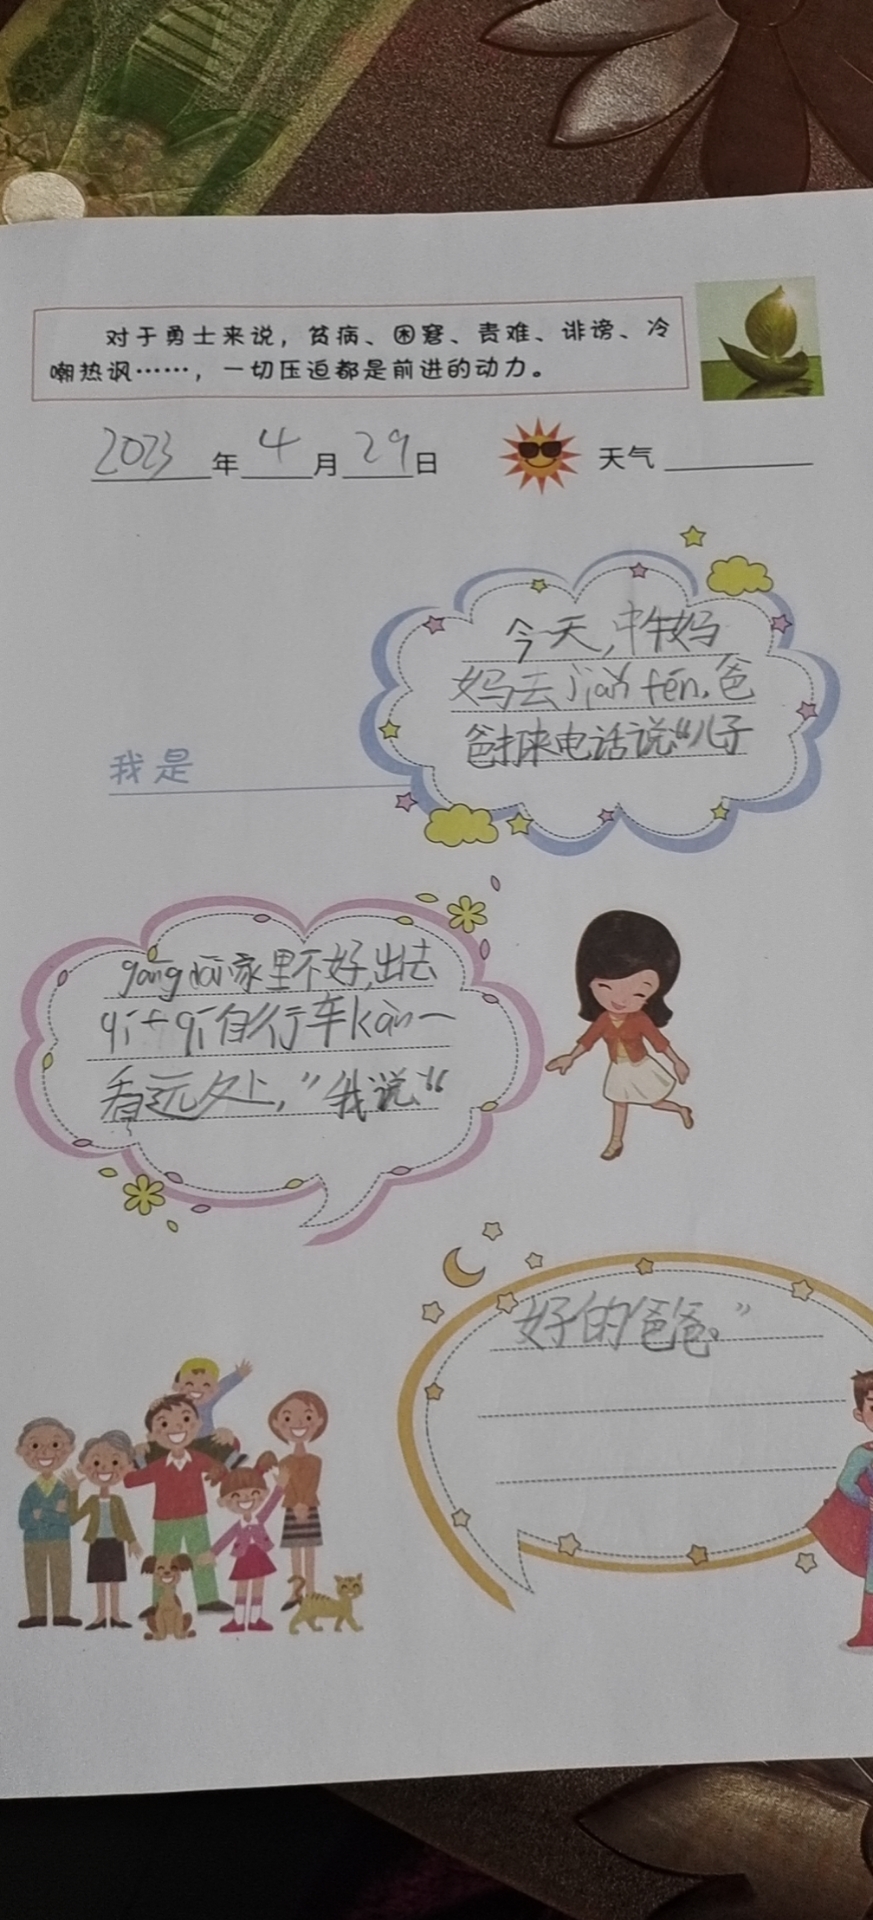 对于勇士来说，贫病、困窘、责难、诽谤、冷
嘲热讽……，一切压迫都是前进的动力。
2023年4月29日 天气
今天,中午妈
妈去jiǎn fēn,爸
爸打来电话说“儿子
我是
gāng dāi家里不好,出去
qí十qí自行车kàn一
看远处,”我说“
好的爸爸。”